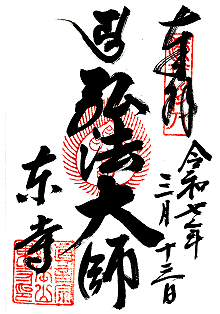 奉拝
令和七年
三月十三日
弘法大師
東寺